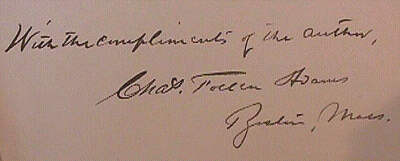 With the compliments of the author,
Chas. Follen Adams
Boston, Mass.